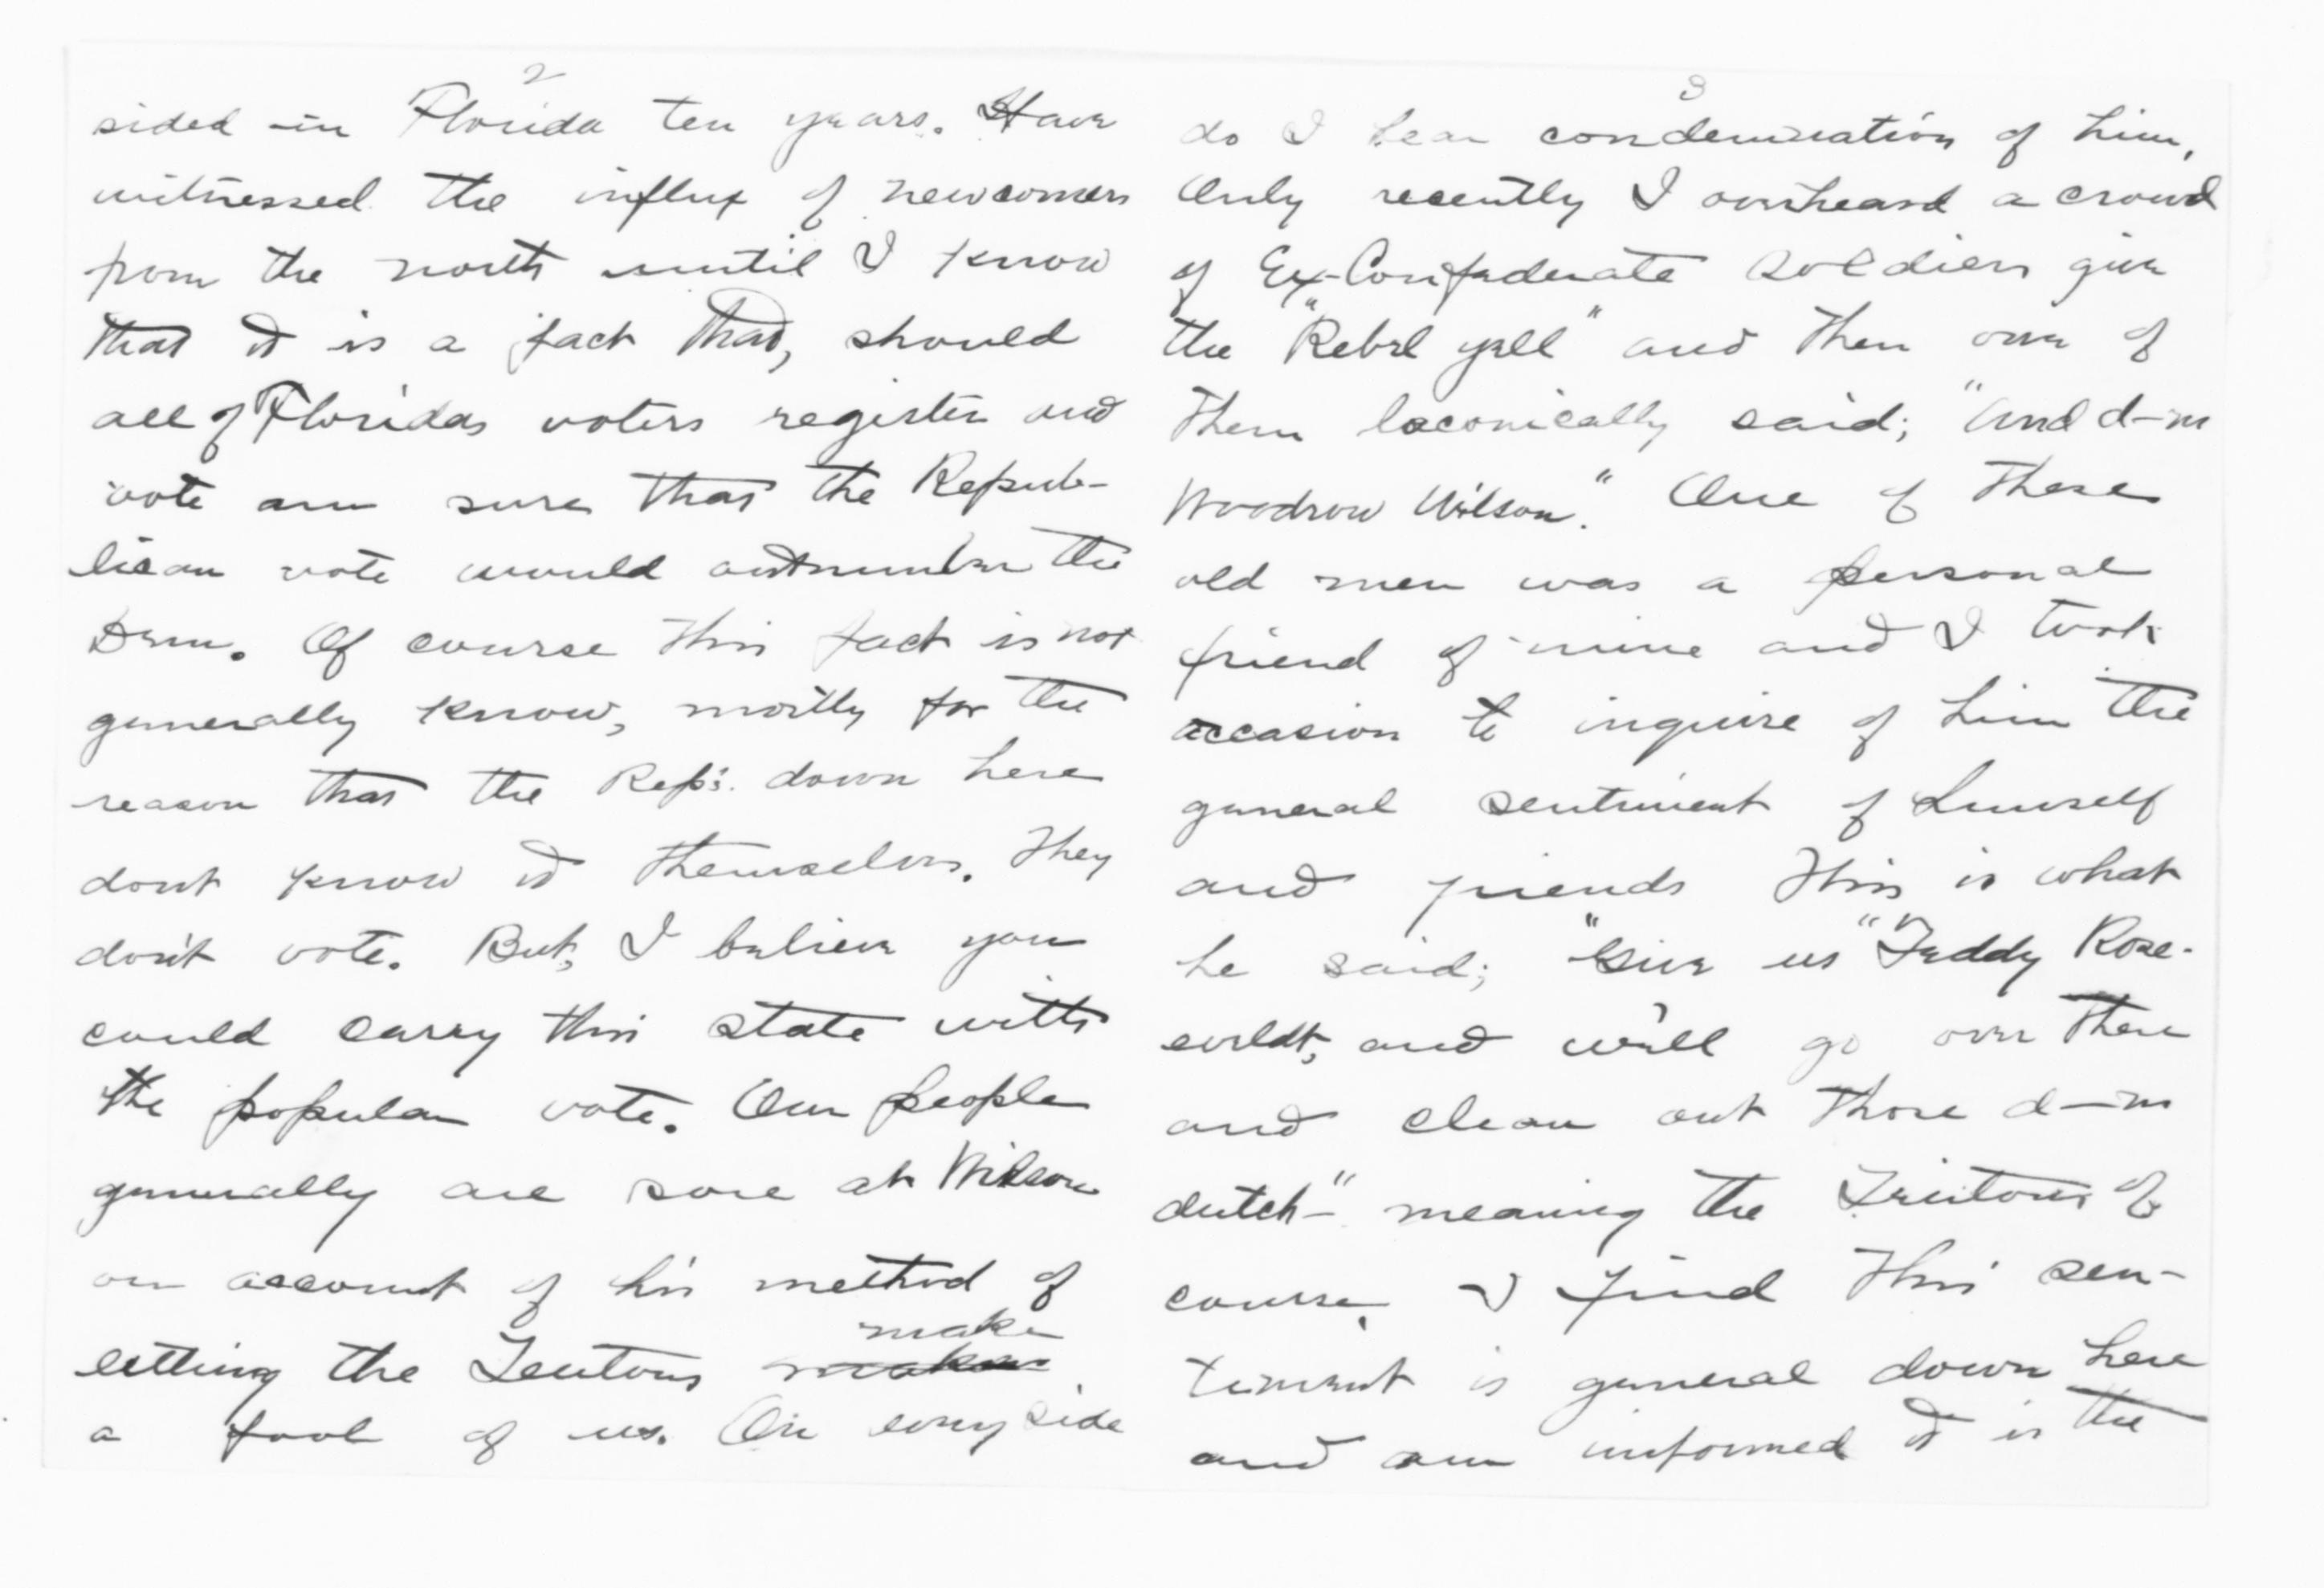 2
sided in Florida ten years. Have
witnessed the influx of newcomers
from the north until I know
that it is a fact that, should
all of Floridas voters register and
vote am sure that the Repub-
lican vote would outnumber the
Dem. Of course this fact is not
generally know, mostly for the
reason that the Rep's. down here
dont know it themselves. They
don't vote. But, I believe you
could carry this state with
the popular vote. Our people
generally are sore at Wilson
on account of his method of
make
letting the Teutons makes
a fool of us. On every side
3
do I hear condemnation of him,
Only recently I overheard a crowd
of Ex-Confederate Soldiers give
the "Rebel yell" and then one of
them laconically said; "And d-m
Woodrow Wilson." One of these
old men was a personal
friend of mine and I took
occasion to inquire of him the
general sentiment of himself
and friends This is what
he said; "Give us "Teddy Rose-
eveldt, and we'll go over there
and clean out those d-m
dutch-" meaning the Teutons of
course. I find this sen-
timent is general down here
and am informed it is the